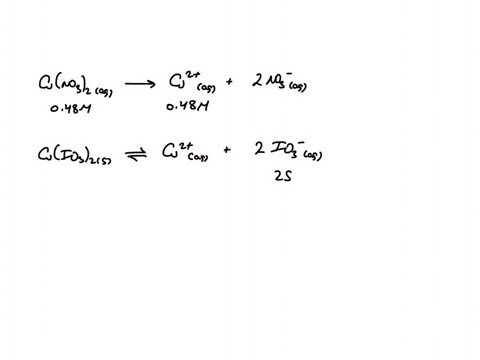 Cu(NO₃)₂(aq) ⟶ Cu²⁺(aq) + 2 NO₃⁻(aq)
0.48M 0.48M
Cu(IO₃)₂(s) ⇌ Cu²⁺(aq) + 2 IO₃⁻(aq)
2S